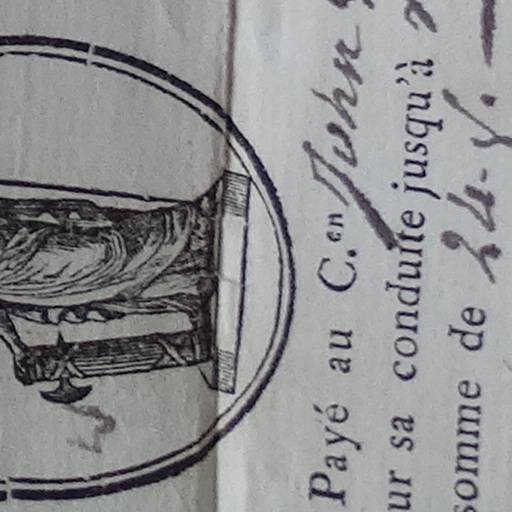 Payé au C.en John
ur sa conduite jusqu'à
somme de 24.